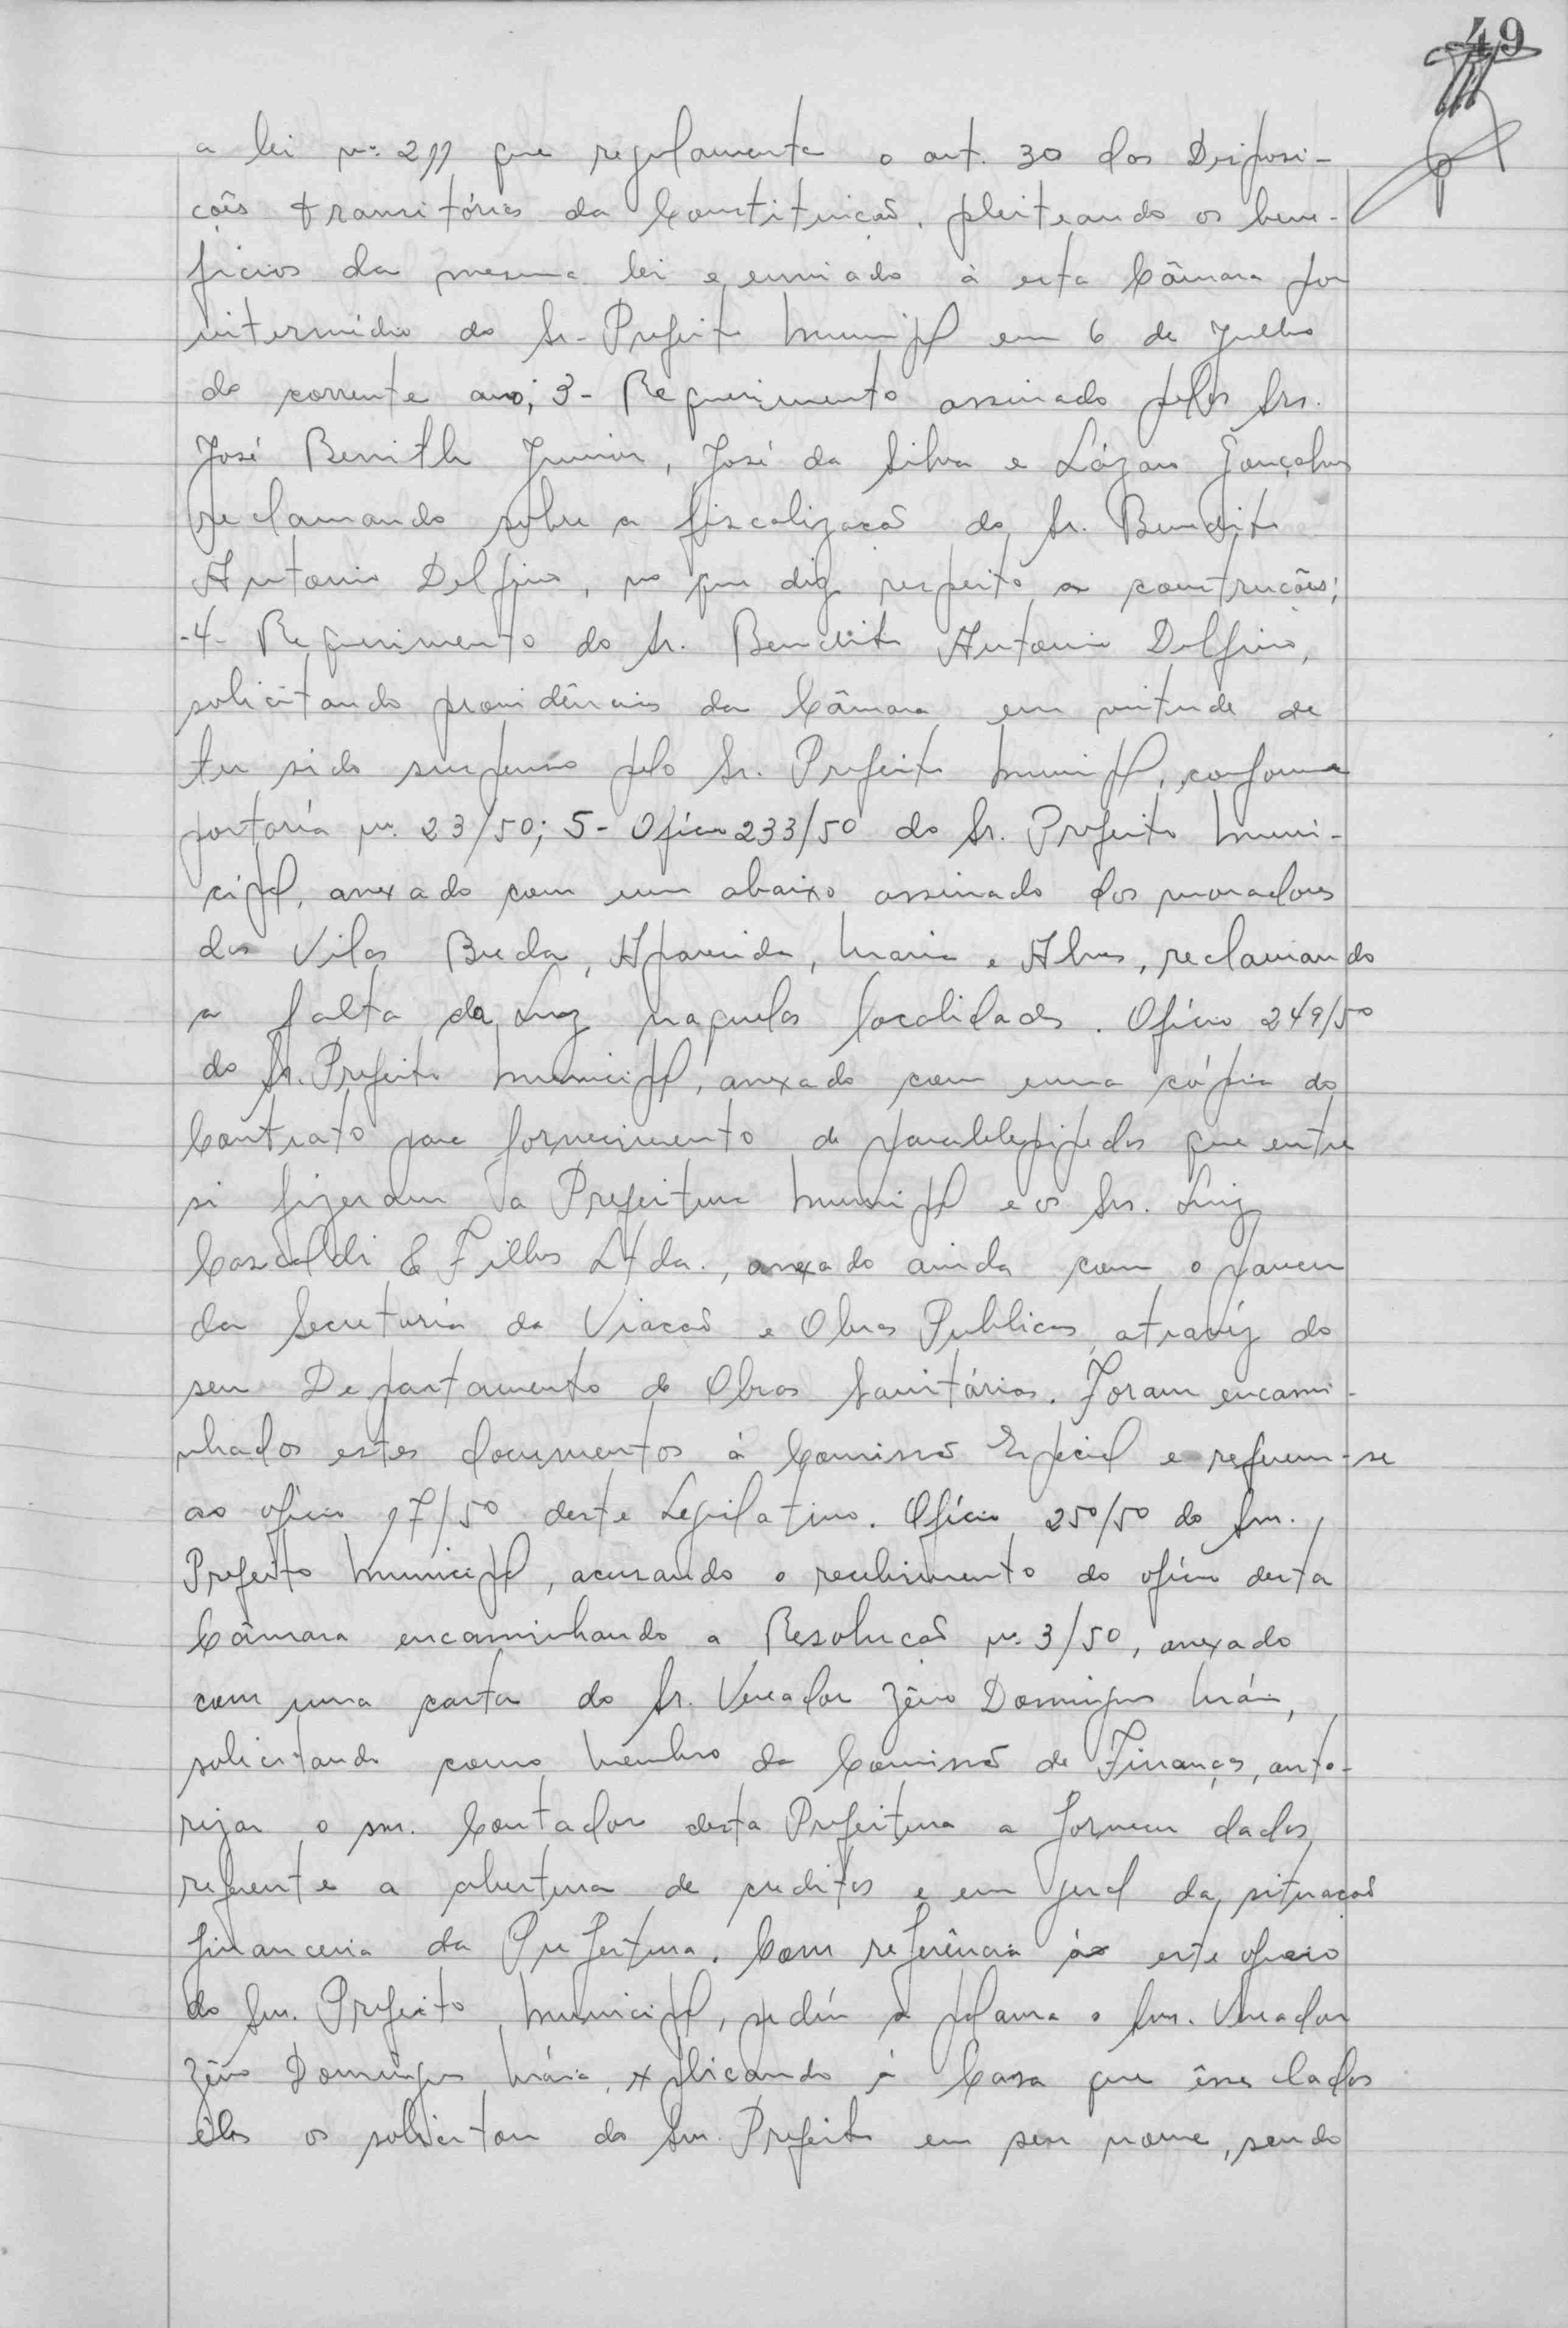 49
a lei nº 211 que regulamenta o art. 30 das Disposi-
cões transitórias da Constituicaõ, pleiteando os bene-
ficios da mesma lei e enviado à esta Câmara por
intermédio do Sr. Prefeito Municipal em 6 de Julho
do corrente ano; 3- Requerimento assinado pelos Srs.
José Benith Junior, José da Silva e Lázaro Gonçalves
reclamando sobre a fiscalizacaõ do Sr. Benedito
Antonio Delfino, no que diz respeito a construcões;
-4- Requerimento do Sr. Benedito Antonio Delfino,
solicitando providências da Câmara em virtude de
ter sido suspenso pelo Sr. Prefeito Municipal, conforme
portaria nº 23/50; 5- Oficio 233/50 do Sr. Prefeito Muni-
cipal, anexado com um abaixo assinado dos moradores
das Vilas Breda, Aparecida, Maria e Alves, reclamando
a falta da Luz naquelas localidades. Ofício 249/50
do Sr. Prefeito Municipal, anexado com uma cópia do
Contrato para fornecimento de paralelepipedos que entre
si fizeram a Prefeitura Municipal e os Srs. Luiz
Cascaldi & Filhos Ltda., anexado ainda com o parecer
da Secretaria da Viacaõ e Obras Publicas, atravéz do
seu Departamento de Obras Sanitárias. Foram encami-
nhados estes documentos à Comissaõ Especial e referem-se
ao oficio 17/50 deste Legislativo. Ofício 250/50 do Snr.
Prefeito Municipal, acusando o recebimento do ofício desta
Câmara encaminhando a Resolucaõ nº 3/50, anexado
com uma carta do Sr. Vereador Zêno Domingues Mária,
solicitando como Membro da Comissaõ de Finanças, auto-
rizar o snr. Contador desta Prefeitura a fornecer dados
referente a abertura de creditos e em geral da situacaõ
financeira da Prefeitura. Com referência à este oficio
do Snr. Prefeito Municipal, pediu a palavra o Snr. Vereador
Zêno Domingues Mária, explicando à Casa que êsses dados
êles os solicitou do Snr. Prefeito em seu nome, sendo